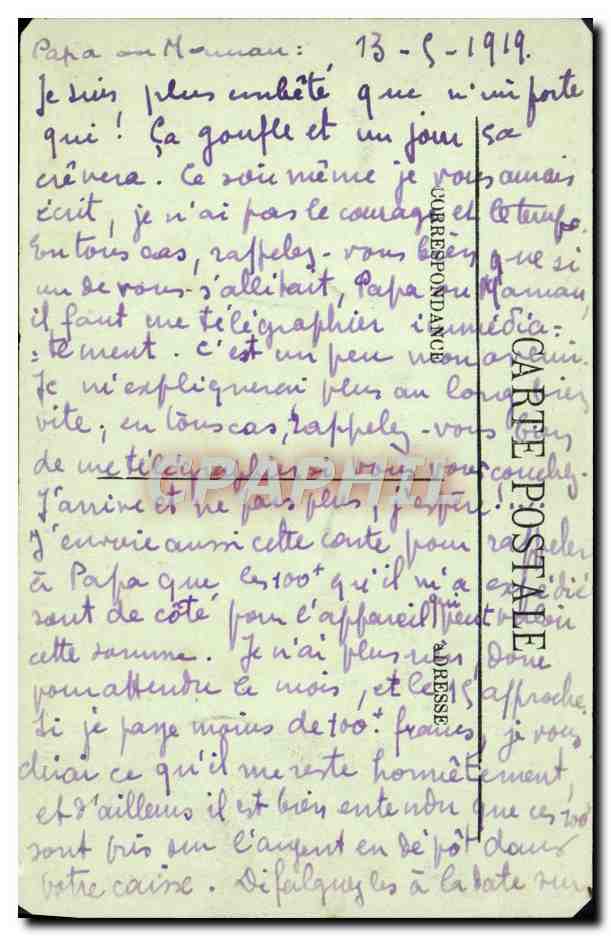 Papa ou Maman : 13-5-1919.
Je suis plus embêté que n'importe
qui ! Ça gonfle et un jour ça
crêvera. Ce soir même je vous aurais
écrit, je n'ai pas le courage et le temps.
En tous cas, rappelez-vous bien que si
un de vous s'allitait, Papa ou Maman,
il faut me télégraphier immédia=
=tement. C'est un peu mon avenir.
Je m'expliquerai plus au long bien
vite, en tous cas, rappelez-vous bien
de me télégraphier si vous vous couchez.
J'arrive et ne pars plus, j'espère !
J'envoie aussi cette carte pour rappeler
à Papa que les 100+ qu'il m'a expédié
sont de côté pour l'appareil qui peut valoir
cette somme. Je n'ai plus rien, donc
pour attendre le mois, et le 15 approche.
Si je paye moins de 100+ francs, je vous
dirai ce qu'il me reste honnêtement,
et d'ailleurs il est bien entendu que ces 100+
sont pris sur l'argent en dépôt dans
votre caisse. Difalquez les à la date sur
CARTE POSTALE
CORRESPONDANCE
ADRESSE
CPAPHIL